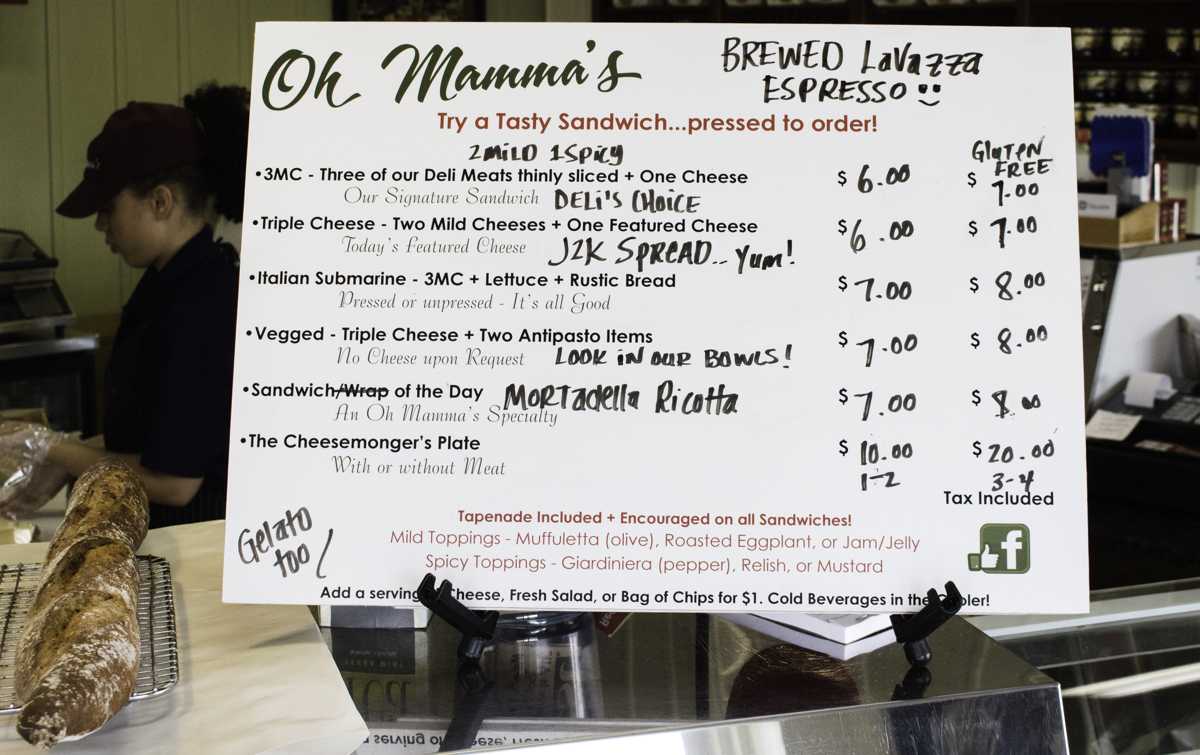 Oh Mamma's
BREWED LaVazza
ESPRESSO
Try a Tasty Sandwich...pressed to order!
2 MILD 1 SPICY
GLUTEN
FREE
•3MC - Three of our Deli Meats thinly sliced + One Cheese $ 6.00 $ 7.00
Our Signature Sandwich DELI'S CHOICE
•Triple Cheese - Two Mild Cheeses + One Featured Cheese $ 6.00 $ 7.00
Today's Featured Cheese J2K SPREAD.. Yum!
•Italian Submarine - 3MC + Lettuce + Rustic Bread $ 7.00 $ 8.00
Pressed or unpressed - It's all Good
•Vegged - Triple Cheese + Two Antipasto Items $ 7.00 $ 8.00
No Cheese upon Request LOOK iN OUR BOWLS!
•Sandwich/Wrap of the Day MORTADella Ricotta $ 7.00 $ 8.00
An Oh Mamma's Specialty
•The Cheesemonger's Plate $ 10.00 $ 20.00
With or without Meat 1-2 3-4
Tax Included
Gelato
too!
Tapenade Included + Encouraged on all Sandwiches!
Mild Toppings - Muffuletta (olive), Roasted Eggplant, or Jam/Jelly
Spicy Toppings - Giardiniera (pepper), Relish, or Mustard
f
Add a serving Cheese, Fresh Salad, or Bag of Chips for $1. Cold Beverages in the